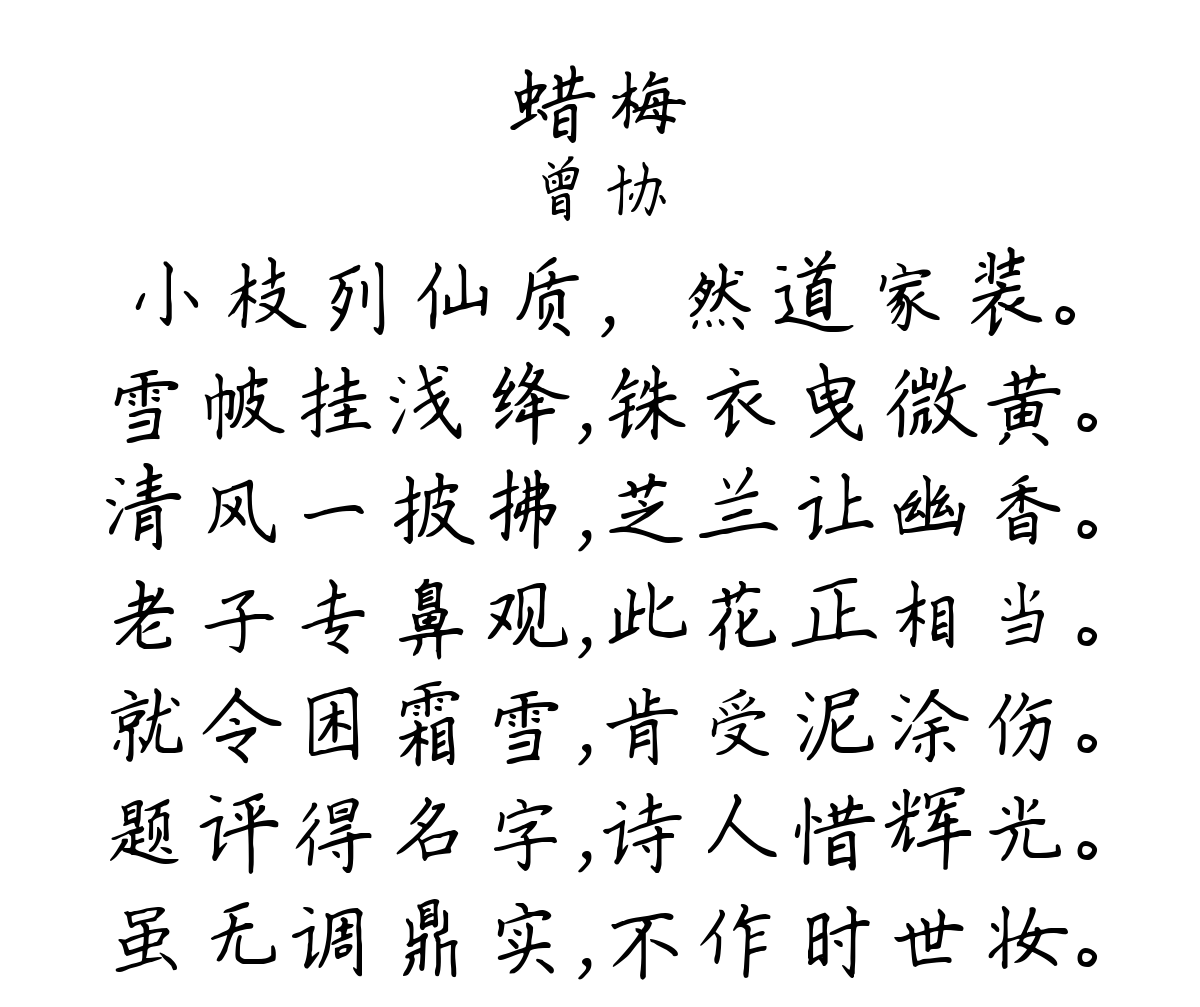 蜡梅
曾协
小枝列仙质，然道家装。
雪帔挂浅绛，铢衣曳微黄。
清风一披拂，芝兰让幽香。
老子专鼻观，此花正相当。
就令困霜雪，肯受泥涂伤。
题评得名字，诗人惜辉光。
虽无调鼎实，不作时世妆。